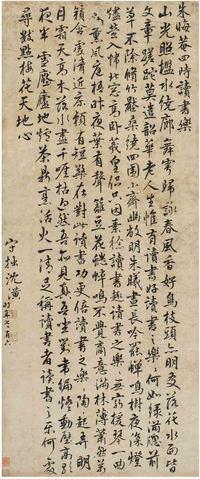 朱晦菴四時讀書樂
山光照檻水繞廊舞雩歸詠春風香好鳥枝頭亦朋友落花水面皆
文章蹉跎莫遣韶華老人生惟有讀書好讀書之樂何如綠滿牕前
草不除脩竹壓簷桑四圍小齋幽敞明朱曦晝長吟罷蟬鳴樹夜深燈
燼螢入幃北窓高臥羲皇侶只因素稔讀書趣讀書之樂無窮援琴一曲
來薰風庭梧昨夜葉有聲籬豆花綻蟀鳴不覺商意滿林薄蕭然萬
籟含虛清近牀賴有短檠在對此讀書功更倍讀書之樂陶陶起弄明
月霜天高木落水盡千崖枯迥然吾亦見真吾坐對韋編燈動壁高歌
夜半雪壓廬地爐茶鼎烹活火一清足稱讀書者讀書之樂何處
尋數點梅花天地心
守拙沈潢